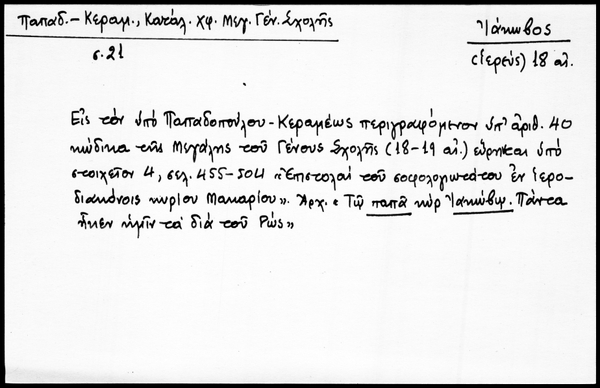 Παπαδ.-Κεραμ., Κατάλ. χφ. Μεγ. Γέν. Σχολῆς
Ἰάκωβος
σ. 21
(ἱερεύς) 18 αἰ.
Εἰς τὸν ὑπὸ Παπαδοπούλου-Κεραμέως περιγραφόμενον ὑπ' ἀριθ. 40
κώδικα τῆς Μεγάλης τοῦ Γένους Σχολῆς (18-19 αἰ.) εὕρηται ὑπὸ
στοιχεῖον 4, σελ. 455-504 «Ἐπιστολαὶ τοῦ σοφολογιωτάτου ἐν ἱερο-
διακόνοις κυρίου Μακαρίου». Ἀρχ. «Τῷ παπᾶ κὺρ Ἰακώβῳ. Πάντα
ἧκεν ἡμῖν τὰ διὰ τοῦ Ρώς»